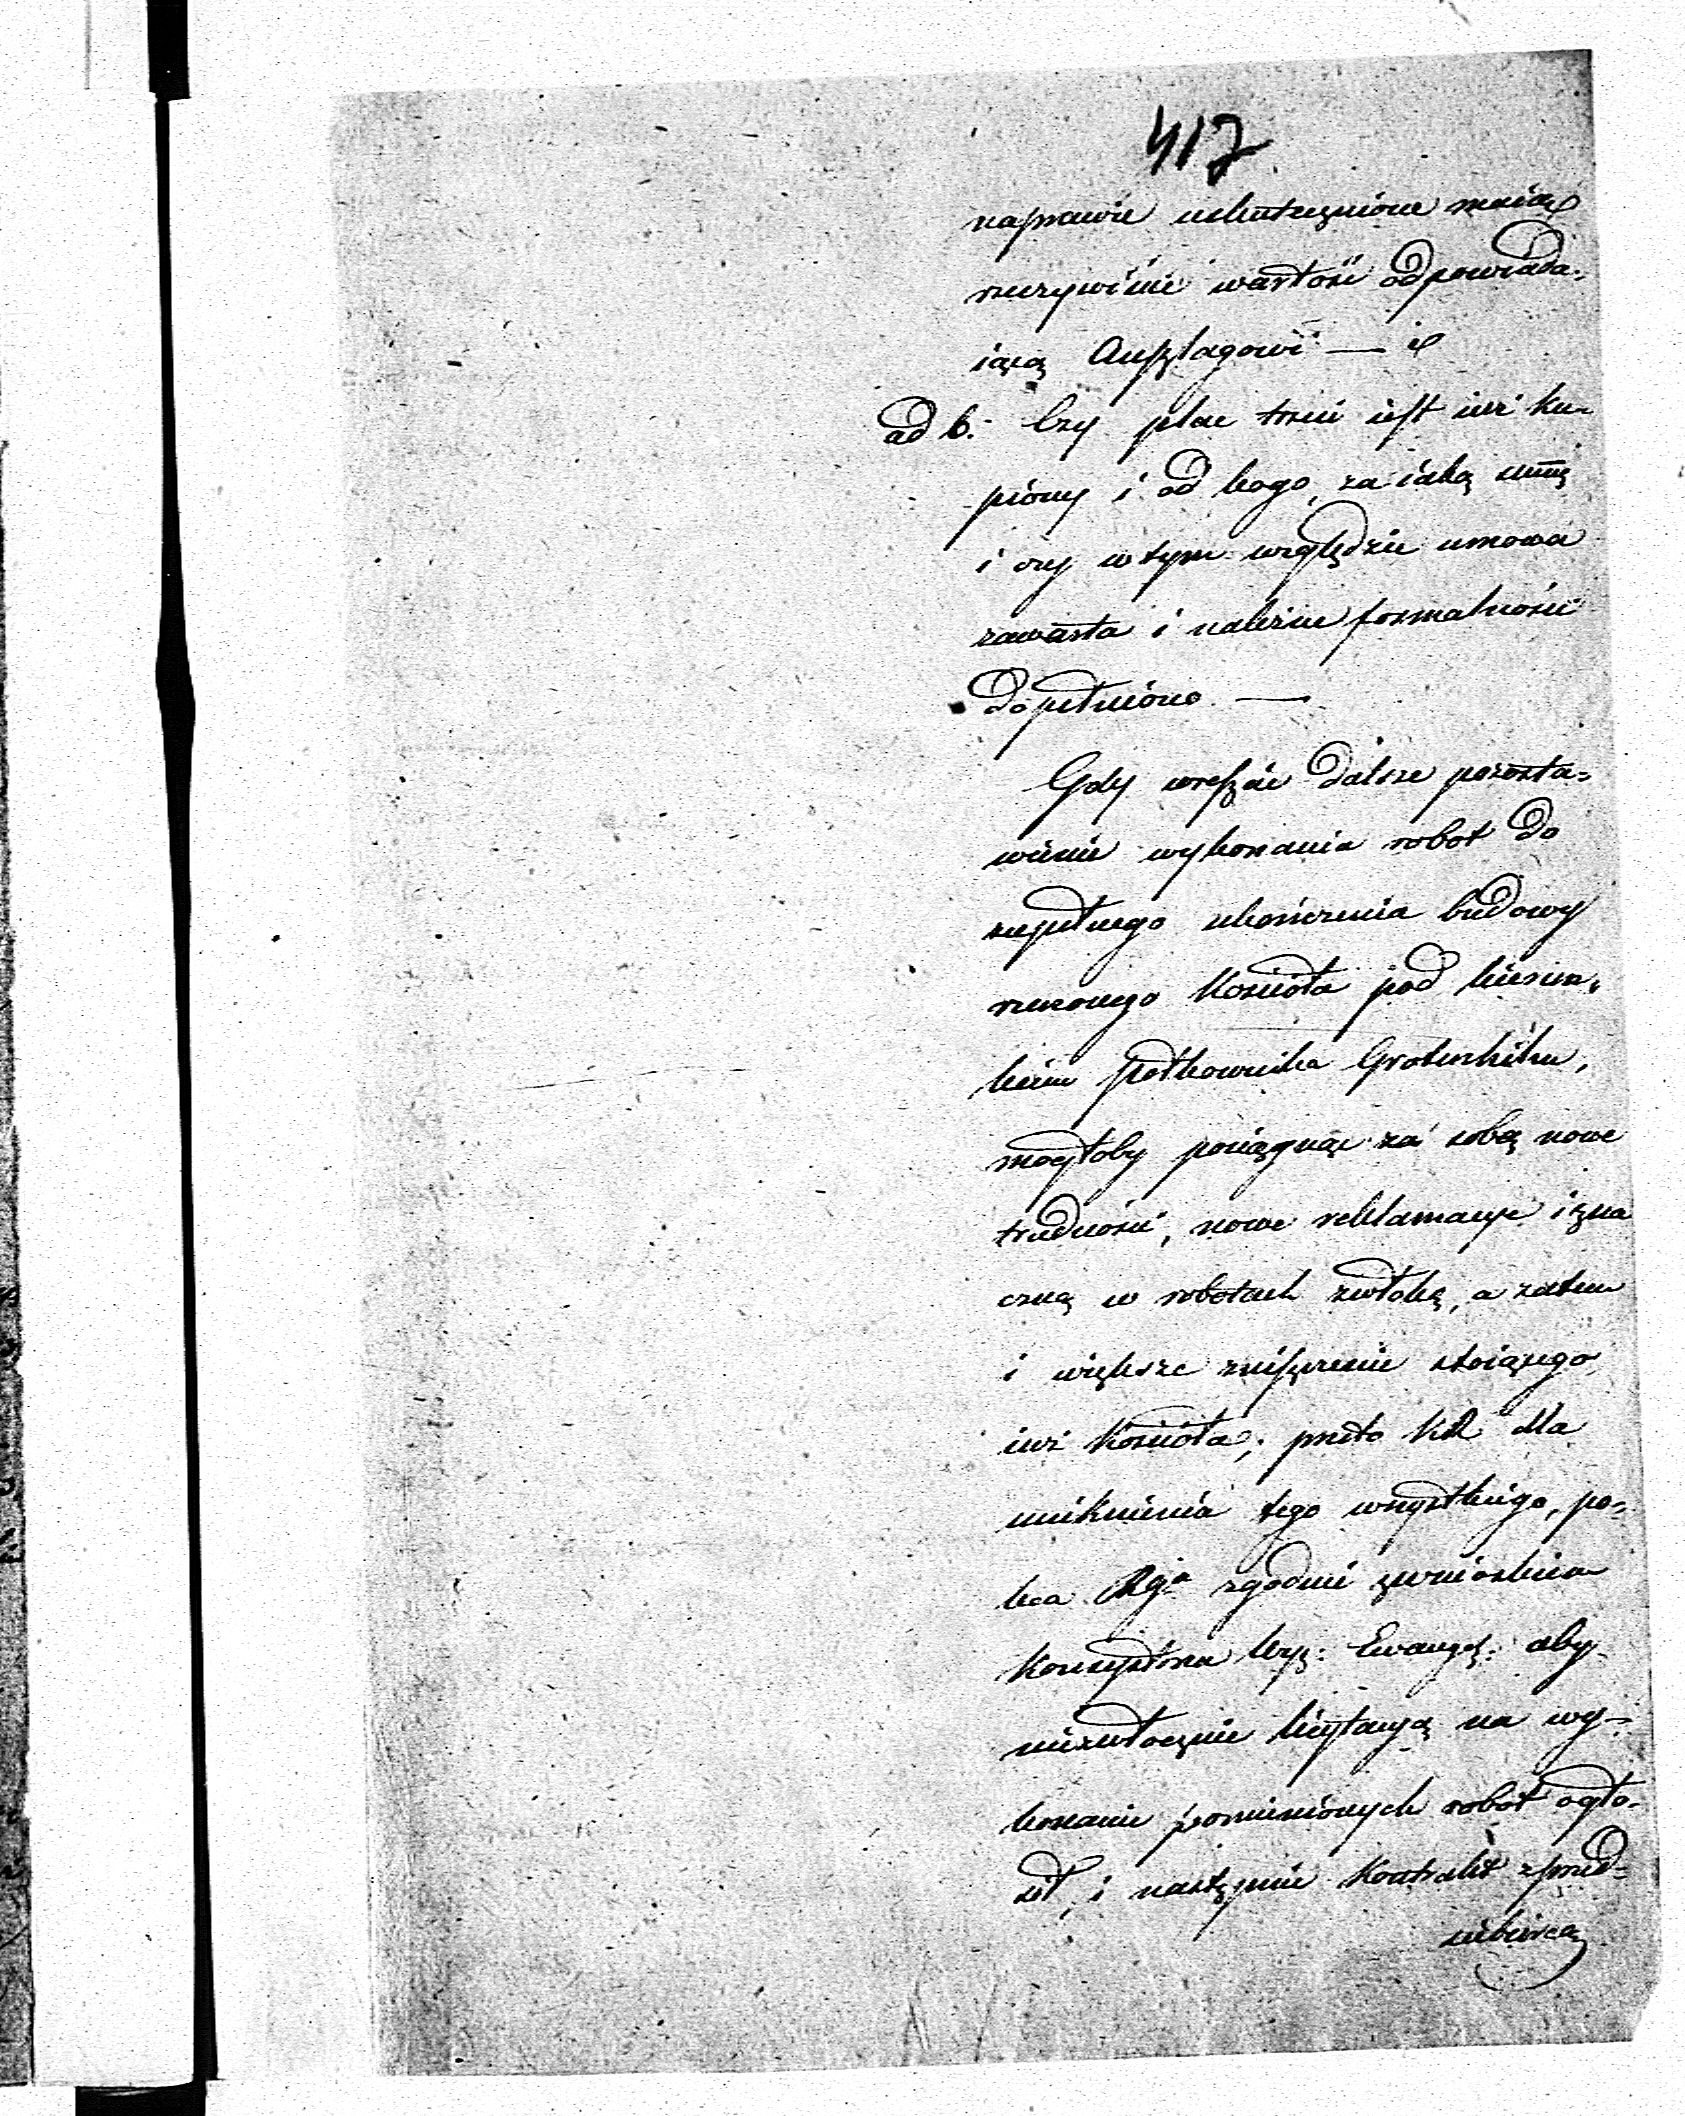 417
naprawie uskutecznione maią
rzeczywiście wartość odpowiada-
iącą Anszlagowi — i
ad b. Czy plac trzci iest iuż ku-
piony i od kogo, za iaką summę
i czy w tym względzie umowa
zawarta i należne formalności
dopełniono. —
Gdy wreszcie dalsze pozosta-
wienie wykonania robot do
zupełnego ukończenia budowy
rzeczonego Kościoła pod kierun-
kiem Półkownika Groteńhielm,
mogłoby pociągnąć za sobą nowe
trudności, nowe reklamacye i zna
czną w robotach zwłokę, a zatem
i większe zniszczenie stoiącego
iuż Kościoła; przeto KR dla
uniknienia tego wszystkiego, po-
leca Rgo zgodnie z wnioskiem
Konsystorza Wyz: Ewang: aby
niezwłocznie licytacyą na wy-
konanie pomienionych robót ogło-
sił, i następnie Kontrakt z przed-
siebiorcą